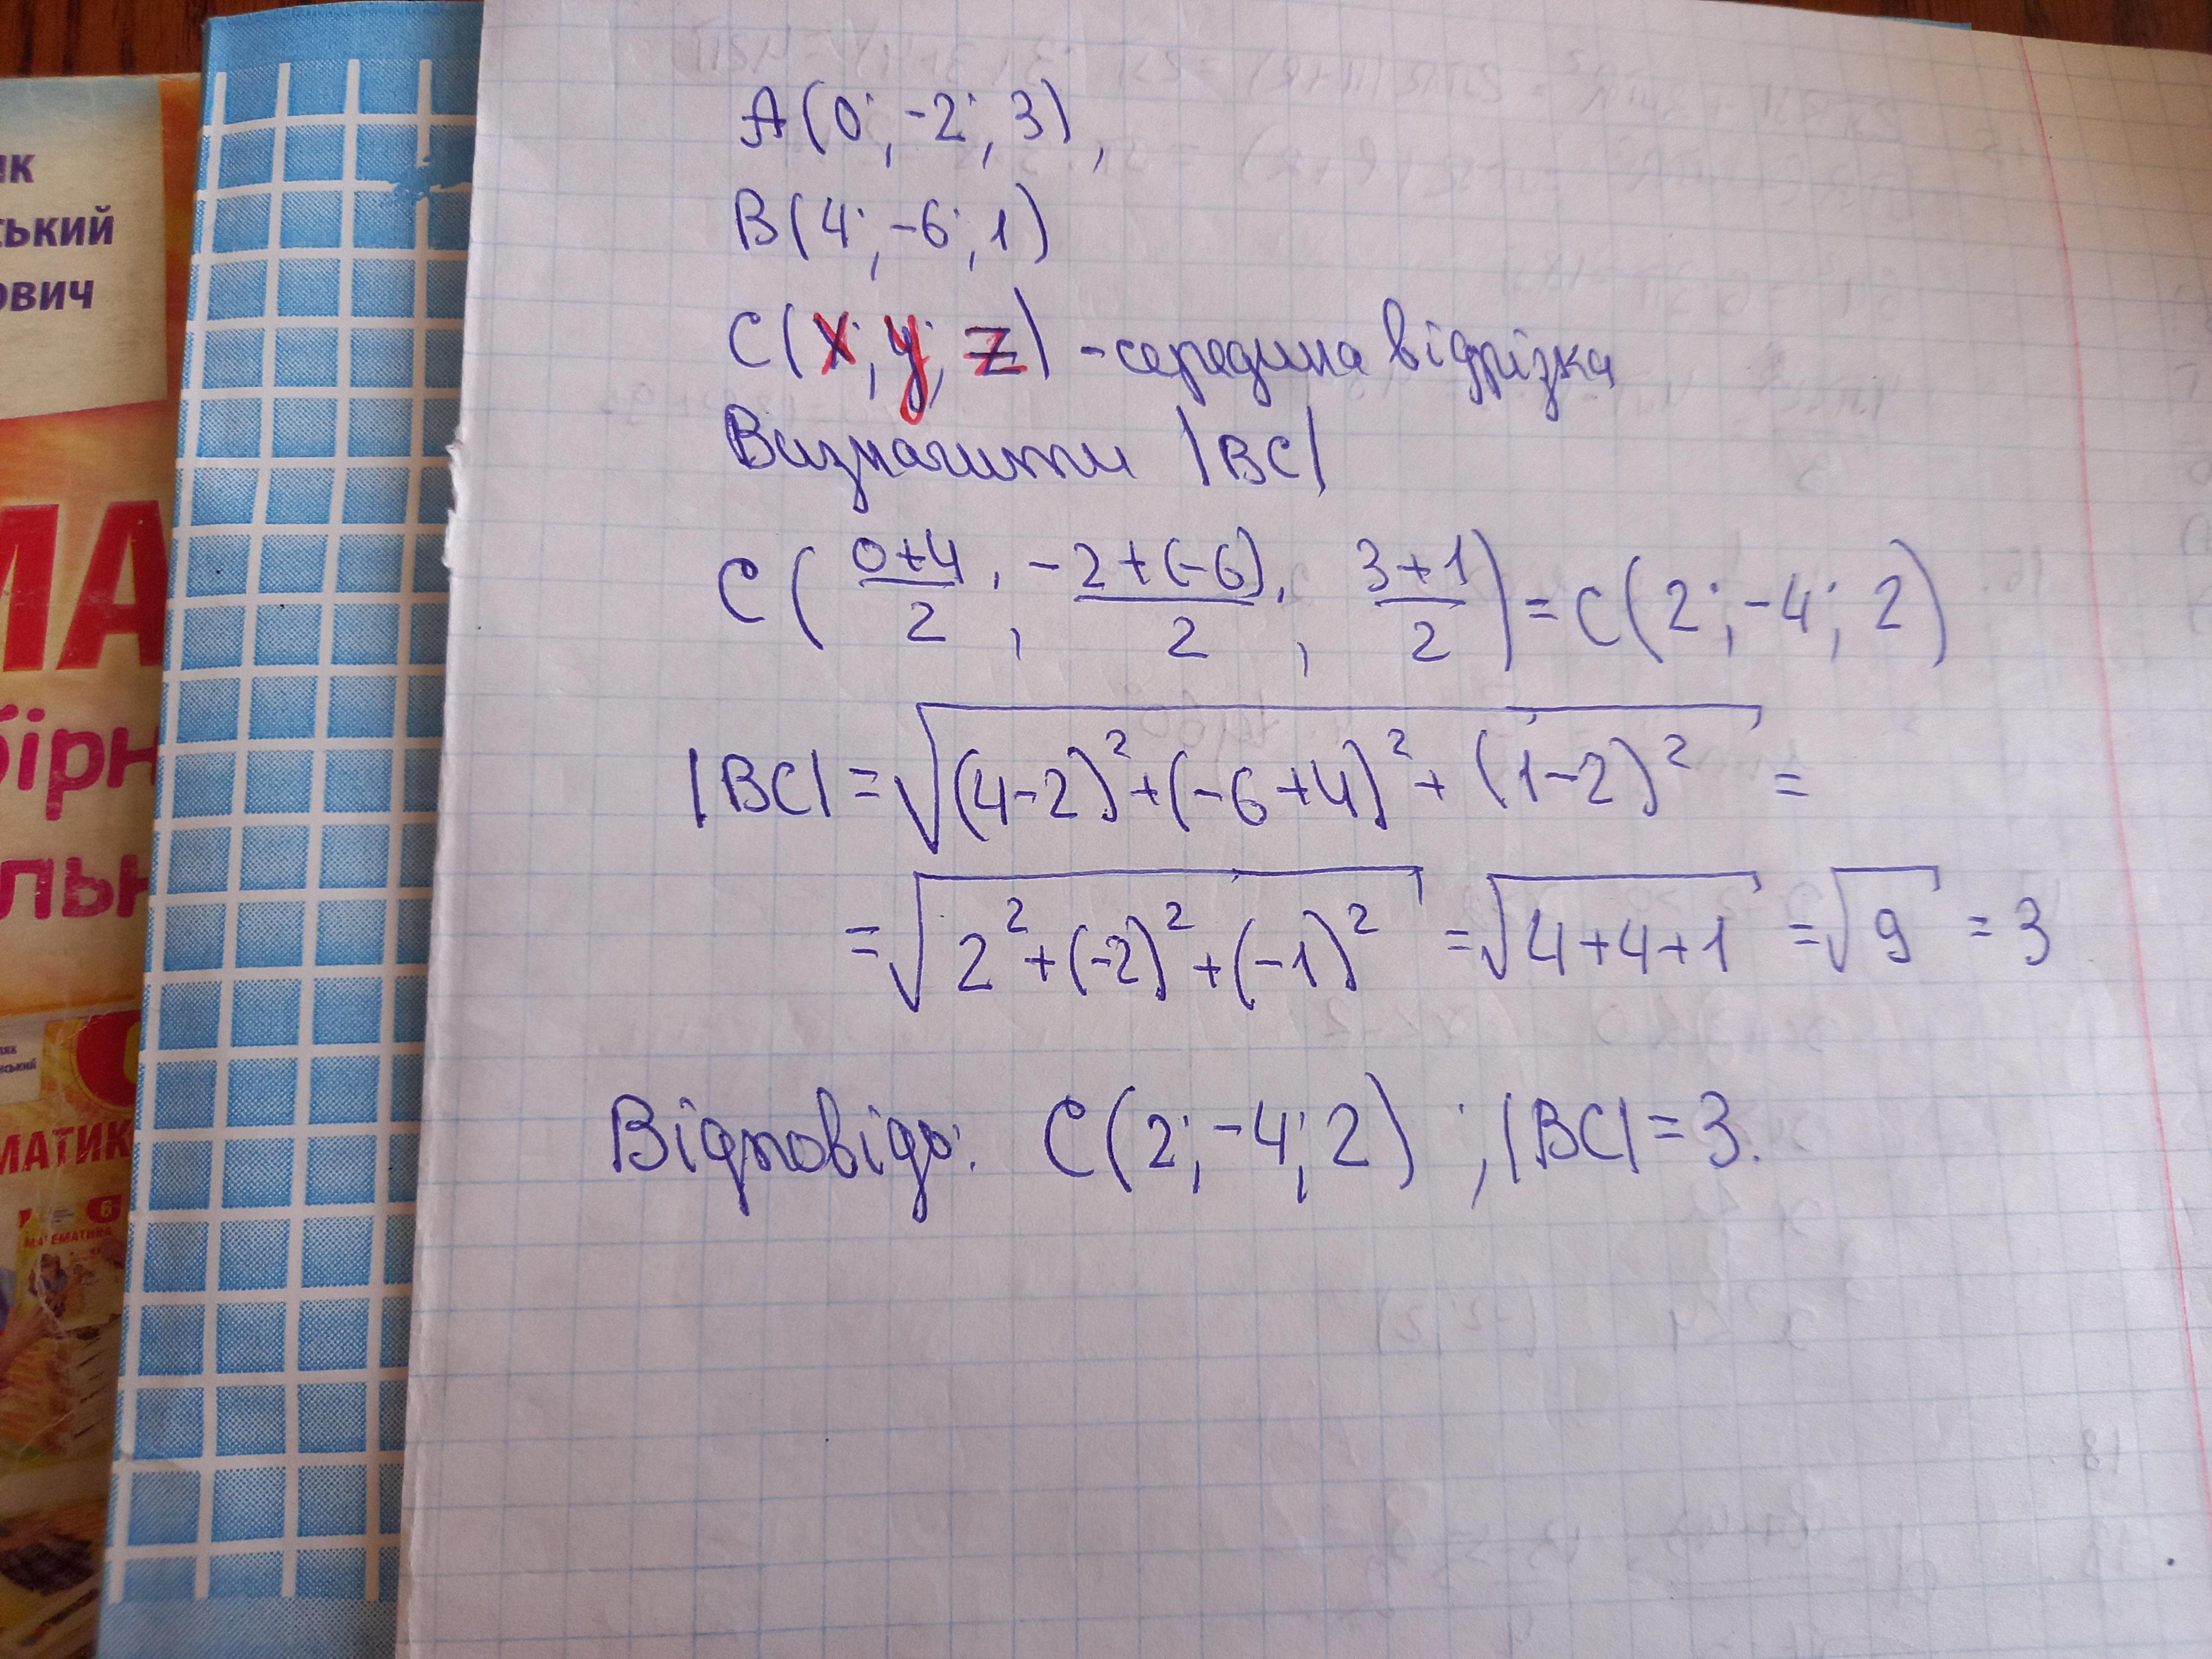 A(0; -2; 3),
B(4; -6; 1)
C(x; y; z) - середина відрізка
Визначити |BC|
C((0+4)/2; (-2+(-6))/2; (3+1)/2) = C(2; -4; 2)
|BC| = √((4-2)² + (-6+4)² + (1-2)²) =
= √(2² + (-2)² + (-1)²) = √(4+4+1) = √9 = 3
Відповідь: C(2; -4; 2) ; |BC| = 3.
як
ський
ович
МА
бірн
льн
МАТИК
6
МАТЕМАТИКА